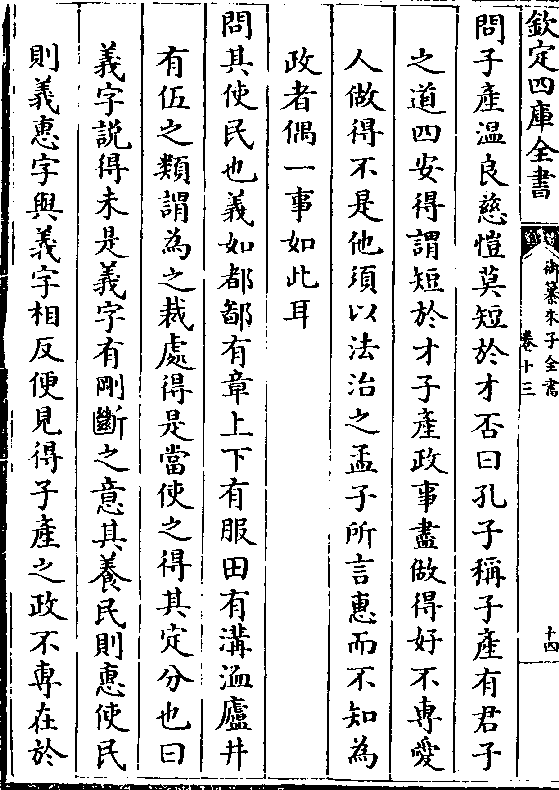 欽定四庫全書
御纂朱子全書
卷十三
十四
問子產温良慈愷莫短於才否曰孔子稱子產有君子
之道四安得謂短於才子產政事盡做得好不專愛
人做得不是他須以法治之孟子所言惠而不知為
政者偶一事如此耳
問其使民也義如都鄙有章上下有服田有溝洫廬井
有伍之類謂為之裁處得是當使之得其定分也曰
義字説得未是義字有剛斷之意其養民則惠使民
則義惠字與義字相反便見得子產之政不專在於